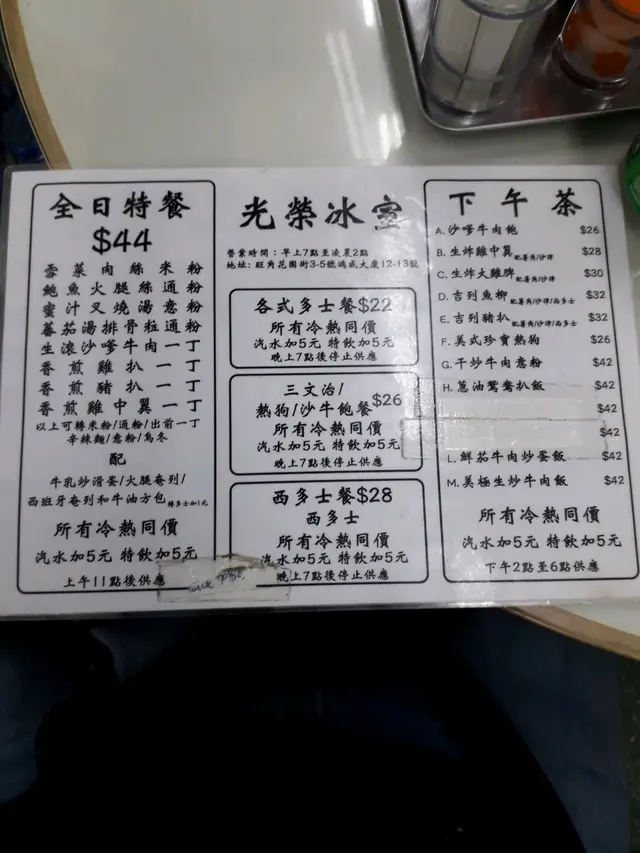 全日特餐
$44
雪菜肉絲米粉
鮑魚火腿絲通粉
蜜汁叉燒湯意粉
蕃茄湯排骨粒通粉
生滾沙嗲牛肉一丁
香煎雞扒一丁
香煎豬扒一丁
香煎雞中翼一丁
以上可轉米粉/通粉/出前一丁
辛辣麵/意粉/烏冬
配
牛乳炒滑蛋/火腿奄列/
西班牙奄列和牛油方包 轉多士加1元
所有冷熱同價
汽水加5元 特飲加5元
上午11點後供應
光榮冰室
營業時間：早上7點至凌晨2點
地址: 旺角花園街3-5號鴻成大廈12-13號
各式多士餐$22
所有冷熱同價
汽水加5元 特飲加5元
晚上7點後停止供應
三文治/
熱狗/沙牛飽餐$26
所有冷熱同價
汽水加5元 特飲加5元
晚上7點後停止供應
西多士餐$28
西多士
所有冷熱同價
汽水加5元 特飲加5元
晚上7點後停止供應
下午茶
A. 沙嗲牛肉飽 $26
B. 生炸雞中翼 配薯角/沙律 $28
C. 生炸大雞脾 配薯角/沙律 $30
D. 吉列魚柳 配薯角/沙律/西多士 $32
E. 吉列豬扒 配薯角/沙律/西多士 $32
F. 美式珍寶熱狗 $26
G. 干炒牛肉意粉 $42
H. 蔥油鴛鴦扒飯 $42
$42
$42
L. 鮮茄牛肉炒蛋飯 $42
M. 美極生炒牛肉飯 $42
所有冷熱同價
汽水加5元 特飲加5元
下午2點至6點供應